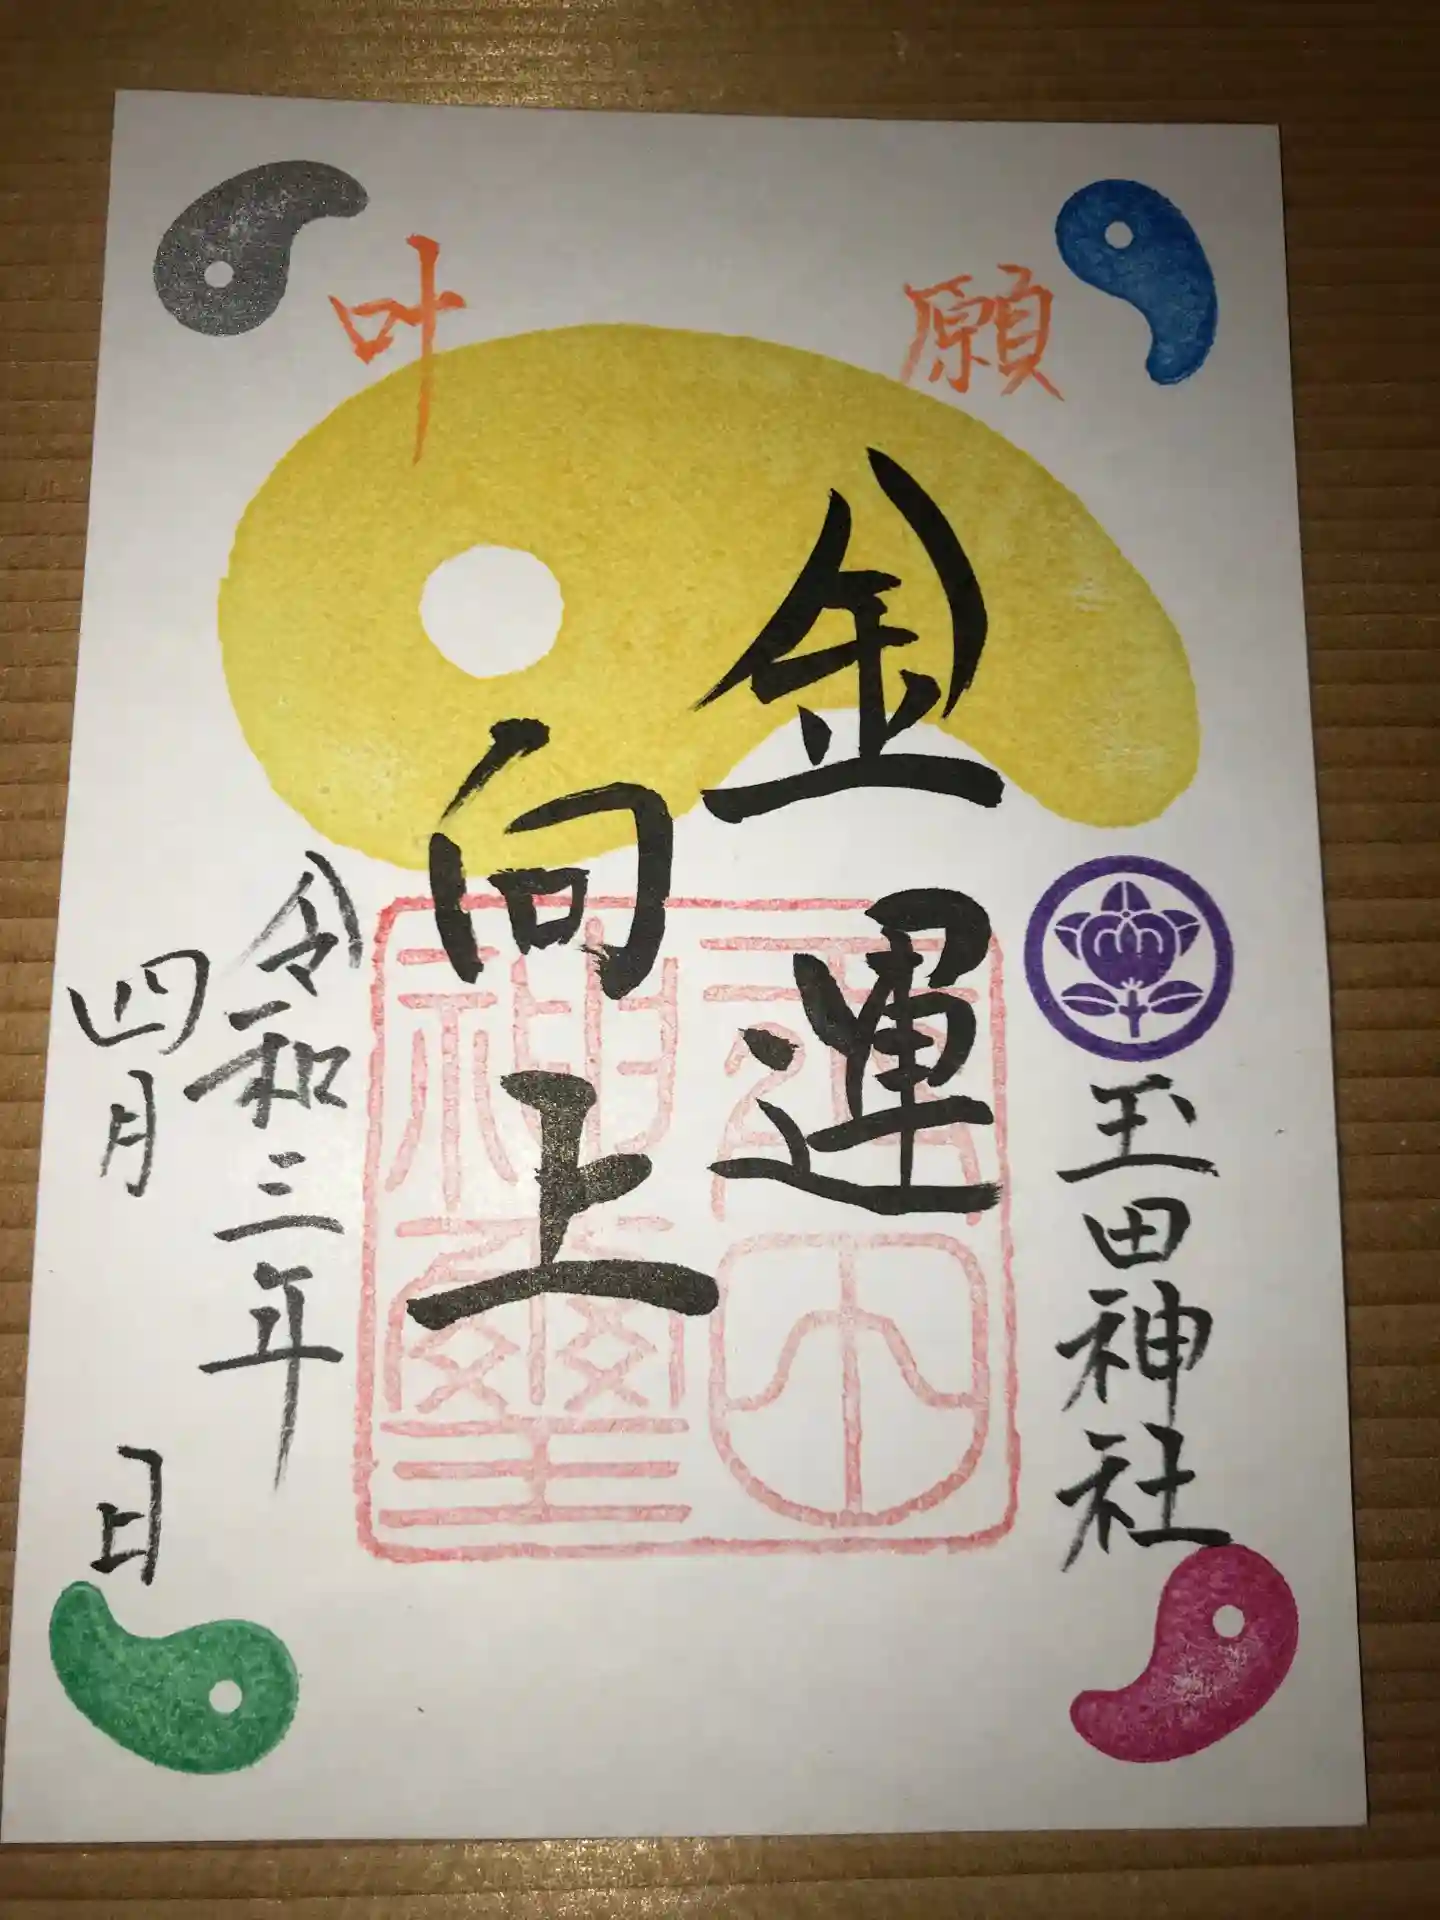 願
叶
玉田神社
金運
向上
令和三年
四月 日